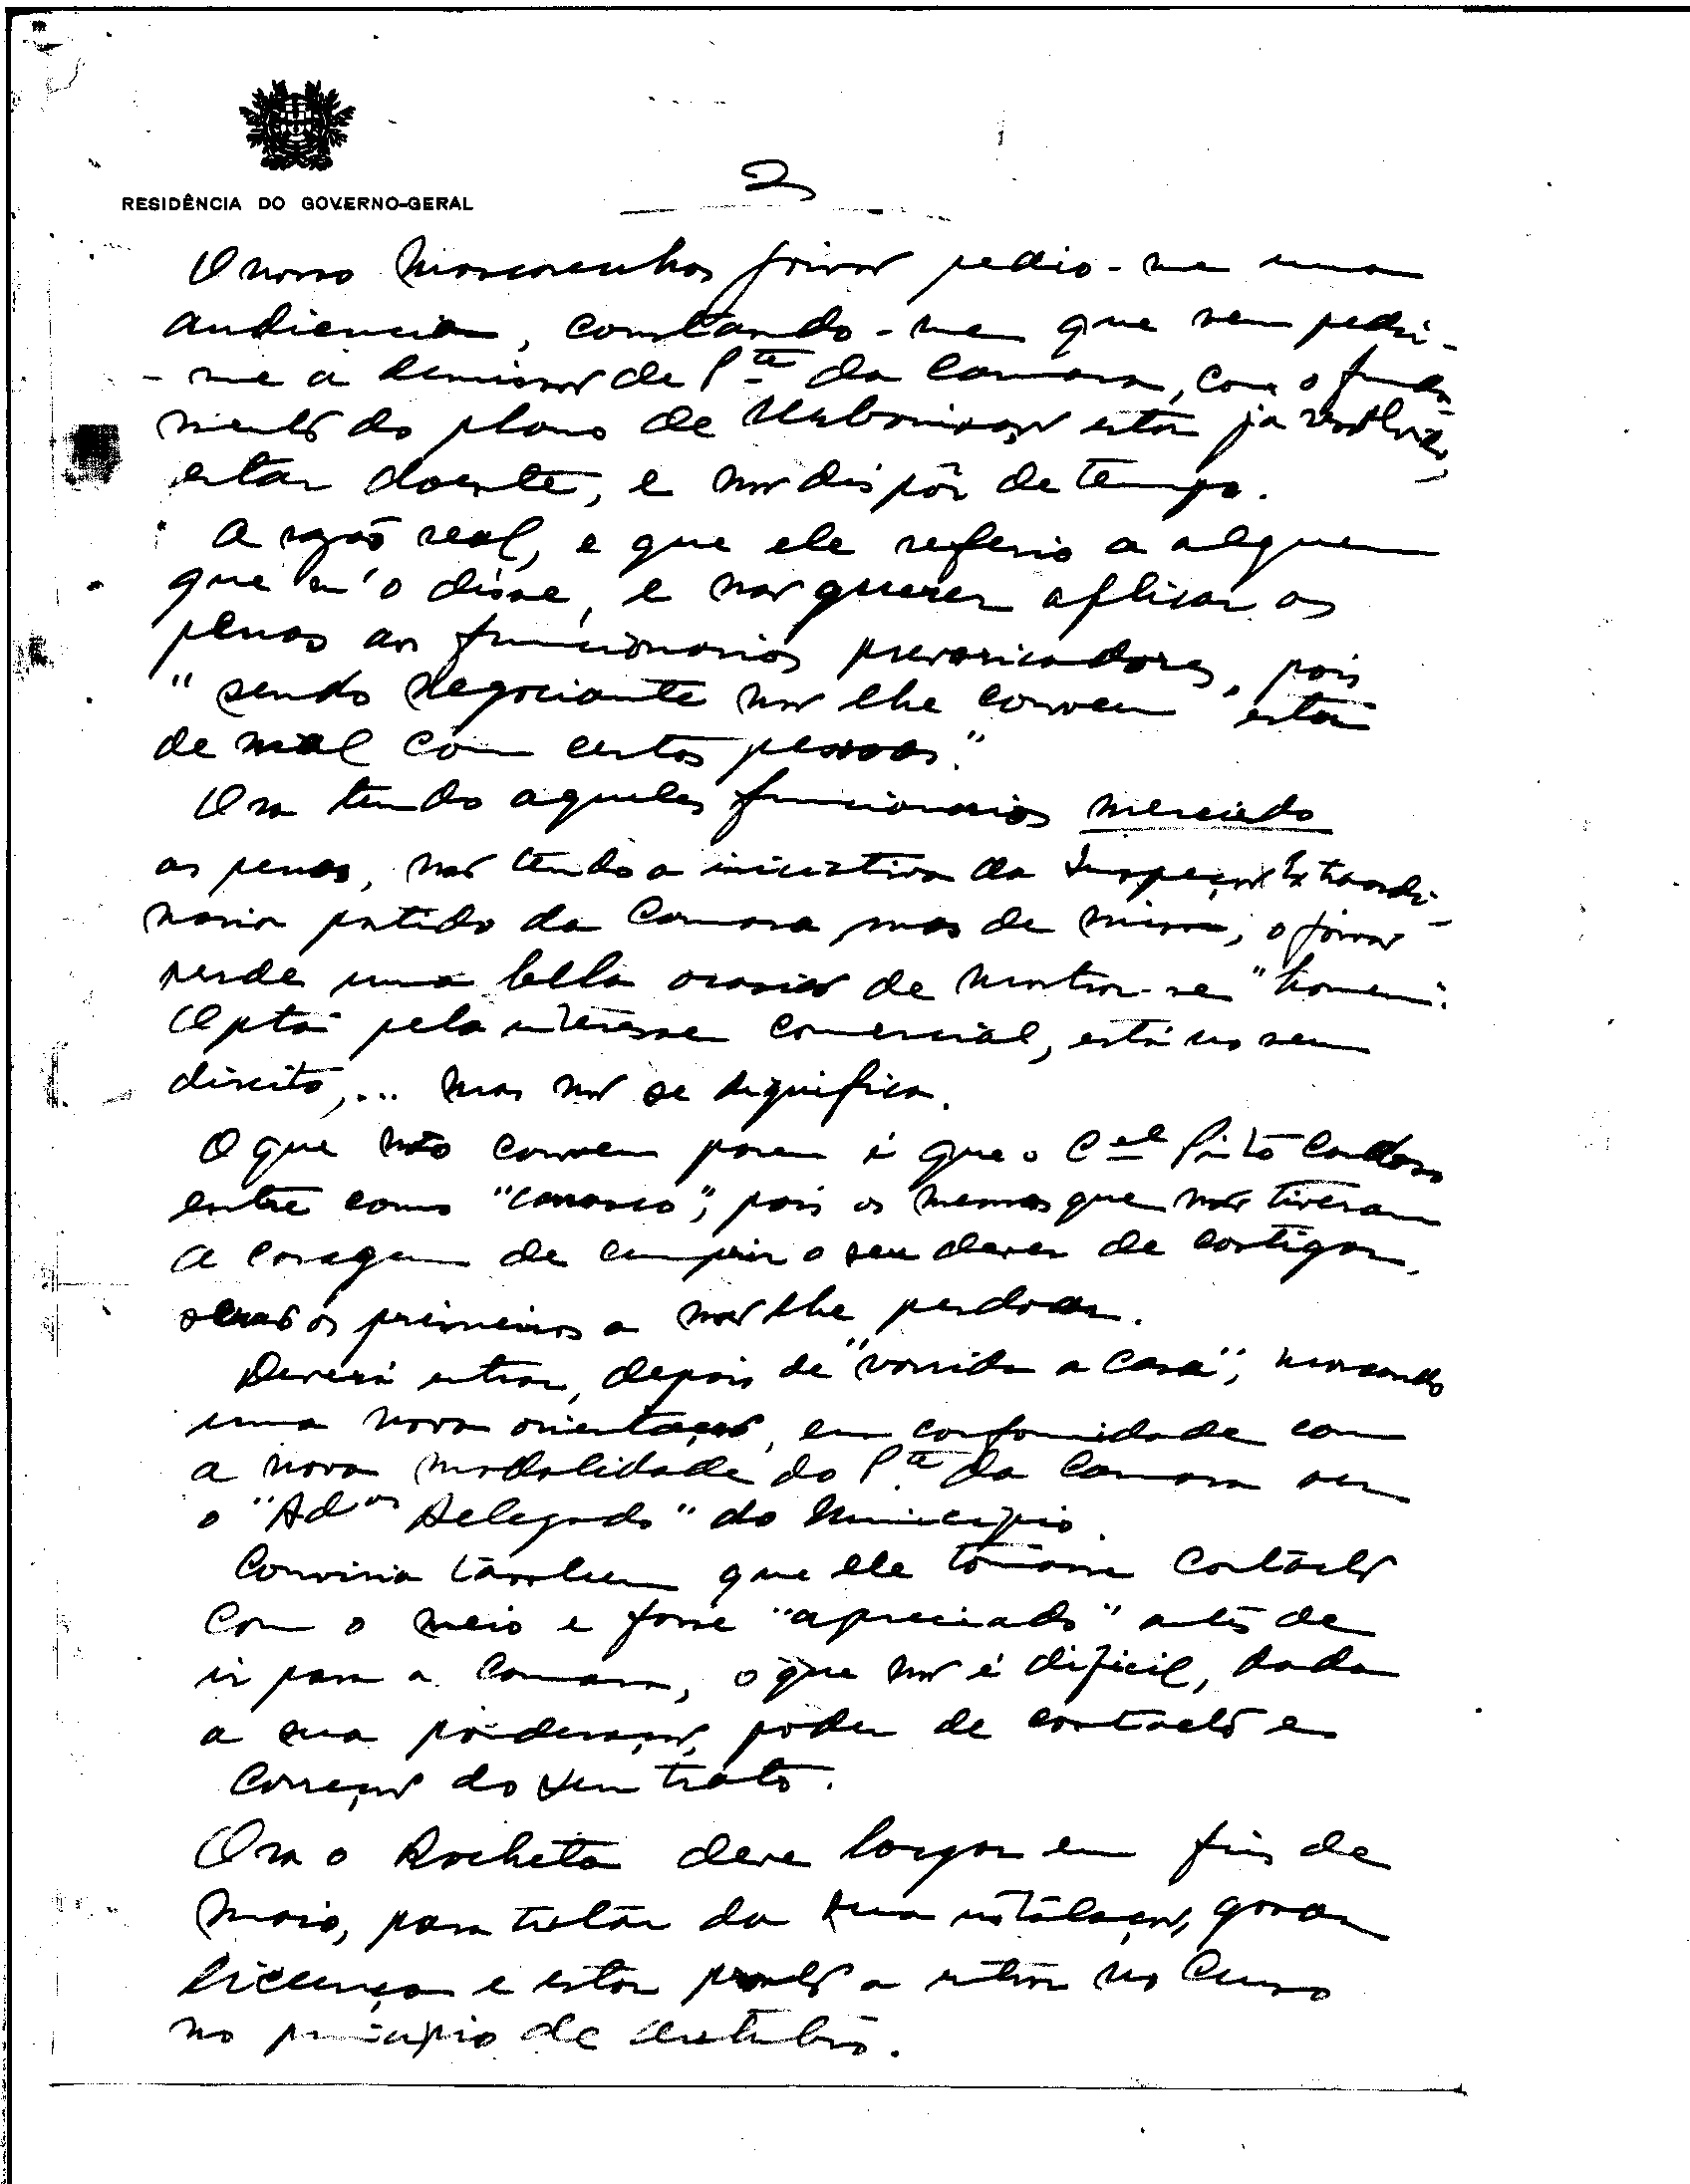 RESIDÊNCIA DO GOVERNO-GERAL
2
O nosso Mascarenhas pedio-me uma
audiencia, constando-me que vem pedir-
-me a demissão de Pte da Camara, com o funda
mento do plano de Urbanização estar ja resolvido,
estar doente, e não dispôr de tempo.
A razão real, e que ele referio a alguem
que m'o disse, e não querer aplicar as
penas aos funcionarios prevaricadores, pois
"sendo negociante não lhe convem estar
de mal com certas pessoas."
Ora tendo aqueles funcionarios merecido
as penas, não tendo a iniciativa da Inspeção Extraordi-
naria partido da Camara, mas de mim, o
perde uma bella ocasião de mostrar-se "homem".
Opta pelo interesse comercial, está no seu
direito,... mas não se dignifica.
O que não convem porem é que o Cel Pinto Cardoso
entre como "carrasco", pois os mesmos que não tiveram
a coragem de cumprir o seu dever de castigar,
serão os primeiros a não lhe perdoar.
Deverá entrar, depois de "varrida a casa", marcando
uma nova orientação, em conformidade com
a nova modalidade do Pte da Camara ser
o "Ador Delegado" do Municipio.
Conviria tambem que ele tomasse contacto
com o meio e fosse "apreciado" antes de
ir para a Camara, o que não é dificil, dada
a sua ponderação, poder de contacto e
correção do seu trato.
Ora o Rocheta deve largar em fins de
Maio, para tratar da sua instalação, gosar
licença e estar pronto a entrar no Curso
no principio de Outubro.